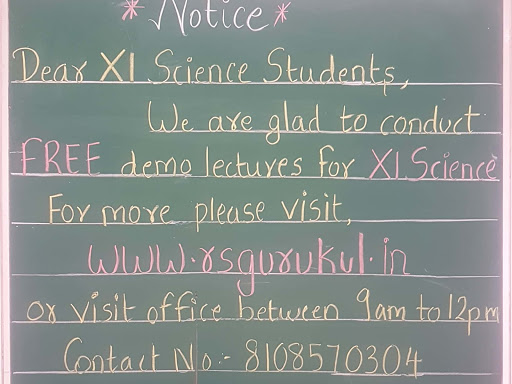 *Notice*
Dear XI Science Students,
We are glad to conduct
FREE demo lectures for XI Science
For more please visit,
www.rsgurukul.in
or visit office between 9am to 12pm
Contact No:- 8108570304